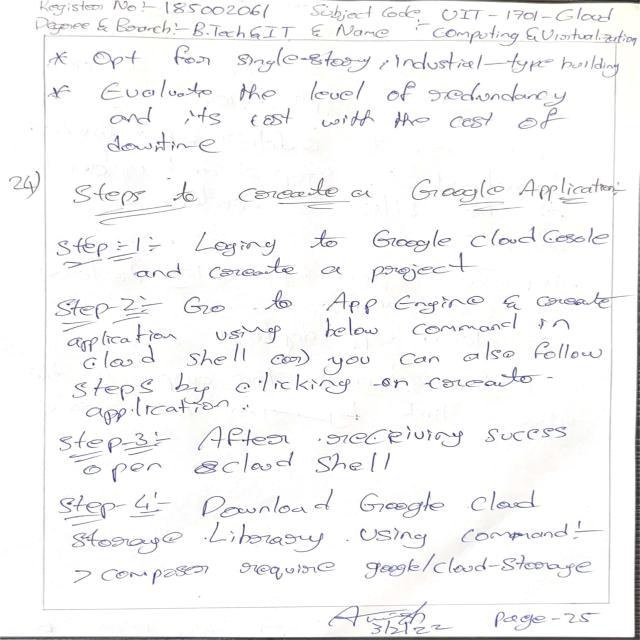 Register No :- 185002061 Subject Code :- UIT - 1701 - Cloud
Degree & Branch :- B.Tech & IT & Name Computing & Virtualization
* Opt for single-story, industrial-type building
* Evaluate the level of redundancy
and its cost with the cost of
downtime
24) Steps to create a Google Application:-
Step-1:- Loging to Google Cloud Cosole
and create a project
Step-2:- Go to App Engine & create
application using below command in
cloud shell (or) you can also follow
steps by clicking on create
application.
Step-3:- After receiving sucess
open cloud Shell
Step-4:- Download Google Cloud
Storage Library using command:-
> composer require google/cloud-Storage
3/2/22 Page-25